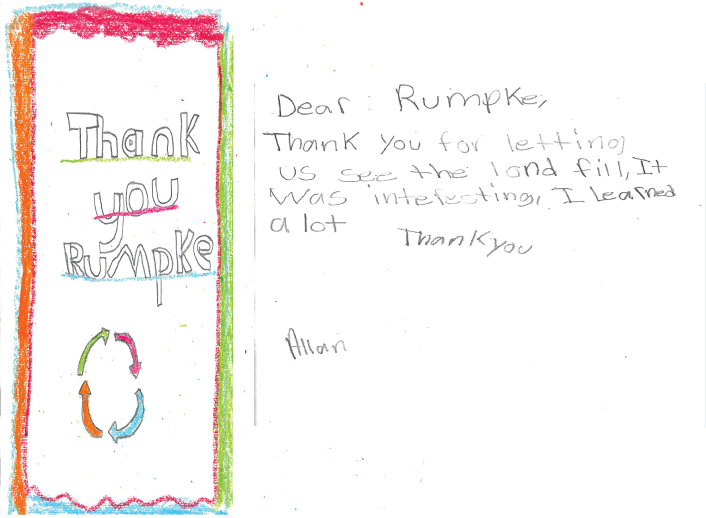 Thank
you
Rumpke
Dear Rumpke,
Thank you for letting
us see the land fill, It
was intefesting, I leafned
a lot
Thank you
Allan